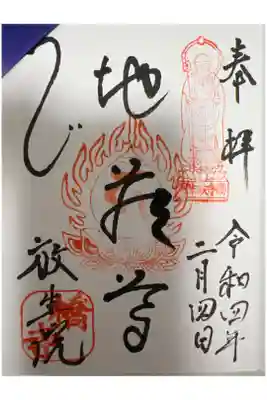 奉拝
令和四年
二月四日
地蔵尊
うじ
放生院
橋寺